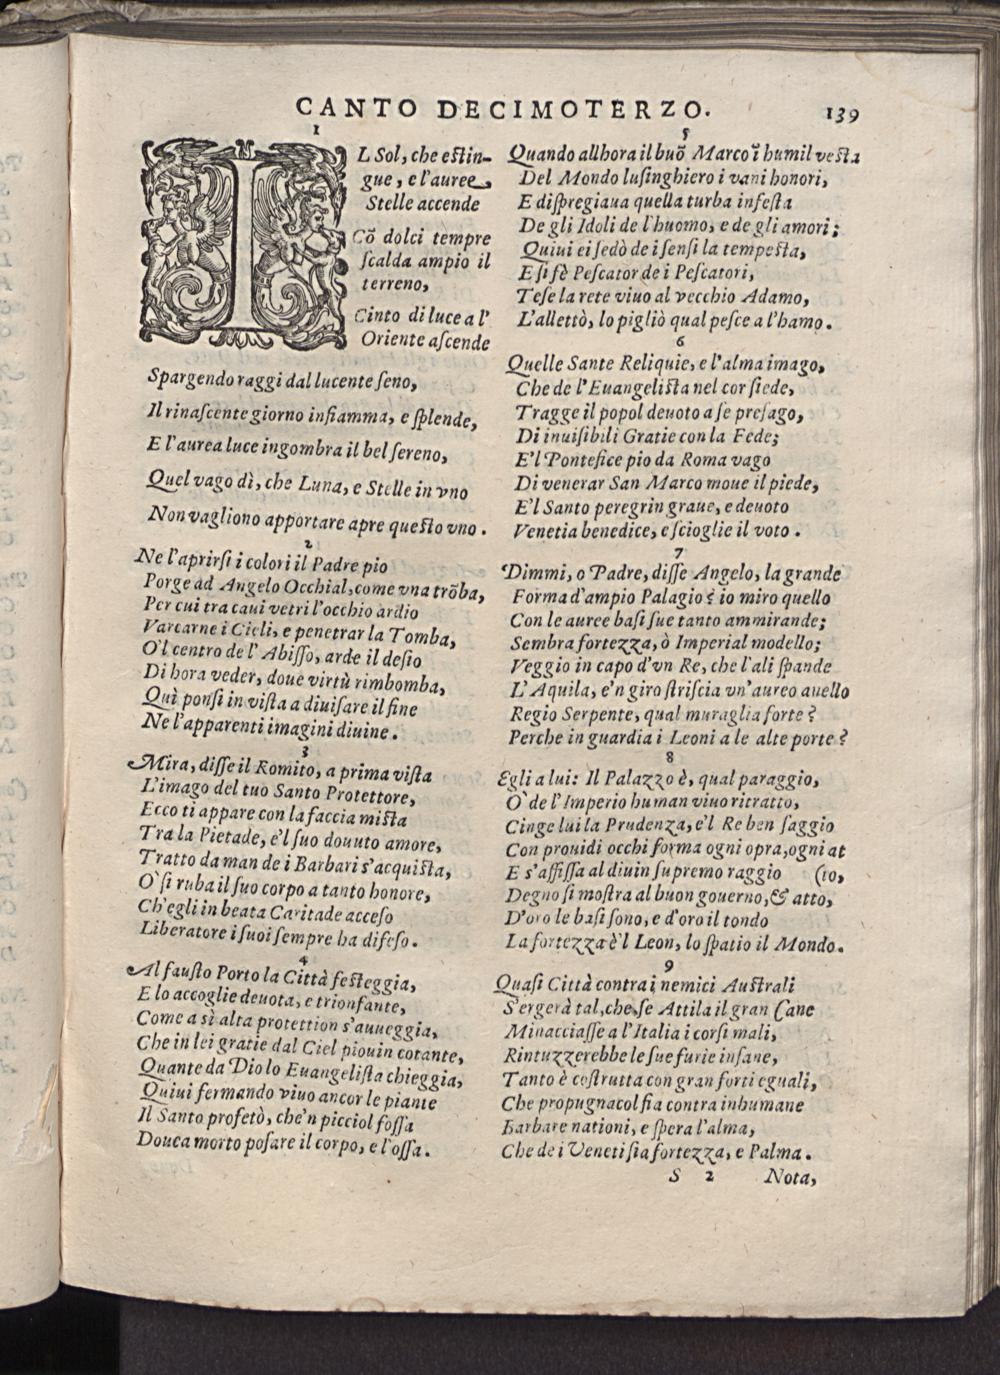 CANTO DECIMOTERZO. 139
1
IL Sol, che eſtin-
gue, e l'auree
Stelle accende
Cō dolci tempre
ſcalda ampio il
terreno,
Cinto di luce a l'
Oriente aſcende
Spargendo raggi dal lucente ſeno,
Il rinaſcente giorno infiamma, e ſplende,
E l'aurea luce ingombra il bel ſereno,
Quel vago dì, che Luna, e Stelle in vno
Non vagliono apportare apre queſto vno.
2
Ne l'aprirſi i colori il Padre pio
Porge ad Angelo Occhial, come vna trōba,
Per cui tra caui vetri l'occhio ardio
Varcarne i Cieli, e penetrar la Tomba,
O'l centro de l'Abiſſo, arde il deſio
Di hora veder, doue virtù rimbomba,
Quì ponſi in viſta a diuiſare il fine
Ne l'apparenti imagini diuine.
3
Mira, diſſe il Romito, a prima viſta
L'imago del tuo Santo Protettore,
Ecco ti appare con la faccia miſta
Tra la Pietade, e'l ſuo douuto amore,
Tratto da man de i Barbari s'acquiſta,
O' ſi ruba il ſuo corpo a tanto honore,
Ch'egli in beata Caritade acceſo
Liberatore i ſuoi ſempre ha difeſo.
4
Al fauſto Porto la Città feſteggia,
E lo accoglie deuota, e trionfante,
Come a sì alta protettion s'auueggia,
Che in lei gratie dal Ciel piouin cotante,
Quante da Dio lo Euangeliſta chieggia,
Quiui fermando viuo ancor le piante
Il Santo profetò, che'n picciol foſſa
Douea morto poſare il corpo, e l'oſſa.
5
Quando allhora il buō Marco ī humil veſta
Del Mondo luſinghiero i vani honori,
E diſpregiaua quella turba infeſta
De gli Idoli de l'huomo, e de gli amori;
Quiui ei ſedò de i ſenſi la tempeſta,
E ſi fè Peſcator de i Peſcatori,
Teſe la rete viuo al vecchio Adamo,
L'allettò, lo pigliò qual peſce a l'hamo.
6
Quelle Sante Reliquie, e l'alma imago,
Che de l'Euangeliſta nel cor ſiede,
Tragge il popol deuoto a ſe preſago,
Di inuiſibili Gratie con la Fede;
E'l Pontefice pio da Roma vago
Di venerar San Marco moue il piede,
E'l Santo peregrin graue, e deuoto
Venetia benedice, e ſcioglie il voto.
7
Dimmi, o Padre, diſſe Angelo, la grande
Forma d'ampio Palagio? io miro quello
Con le auree baſi ſue tanto ammirande;
Sembra fortezza, ò Imperial modello;
Veggio in capo d'vn Re, che l'ali ſpande
L'Aquila, e'n giro ſtriſcia vn'aureo auello
Regio Serpente, qual muraglia forte?
Perche in guardia i Leoni a le alte porte?
8
Egli a lui: Il Palazzo è, qual paraggio,
O' de l'Imperio human viuo ritratto,
Cinge lui la Prudenza, e'l Re ben ſaggio
Con prouidi occhi forma ogni opra, ogni at
E s'affiſſa al diuin ſupremo raggio (to,
Degno ſi moſtra al buon gouerno, & atto,
D'oro le baſi ſono, e d'oro il tondo
La fortezza è'l Leon, lo ſpatio il Mondo.
9
Quaſi Città contra i nemici Auſtrali
S'ergerà tal, che, ſe Attila il gran Cane
Minacciaſſe a l'Italia i corſi mali,
Rintuzzerebbe le ſue furie inſane,
Tanto è coſtrutta con gran forti eguali,
Che propugnacol fia contra inhumane
Barbare nationi, e ſpera l'alma,
Che de i Veneti ſia fortezza, e Palma.
S 2 Nota,